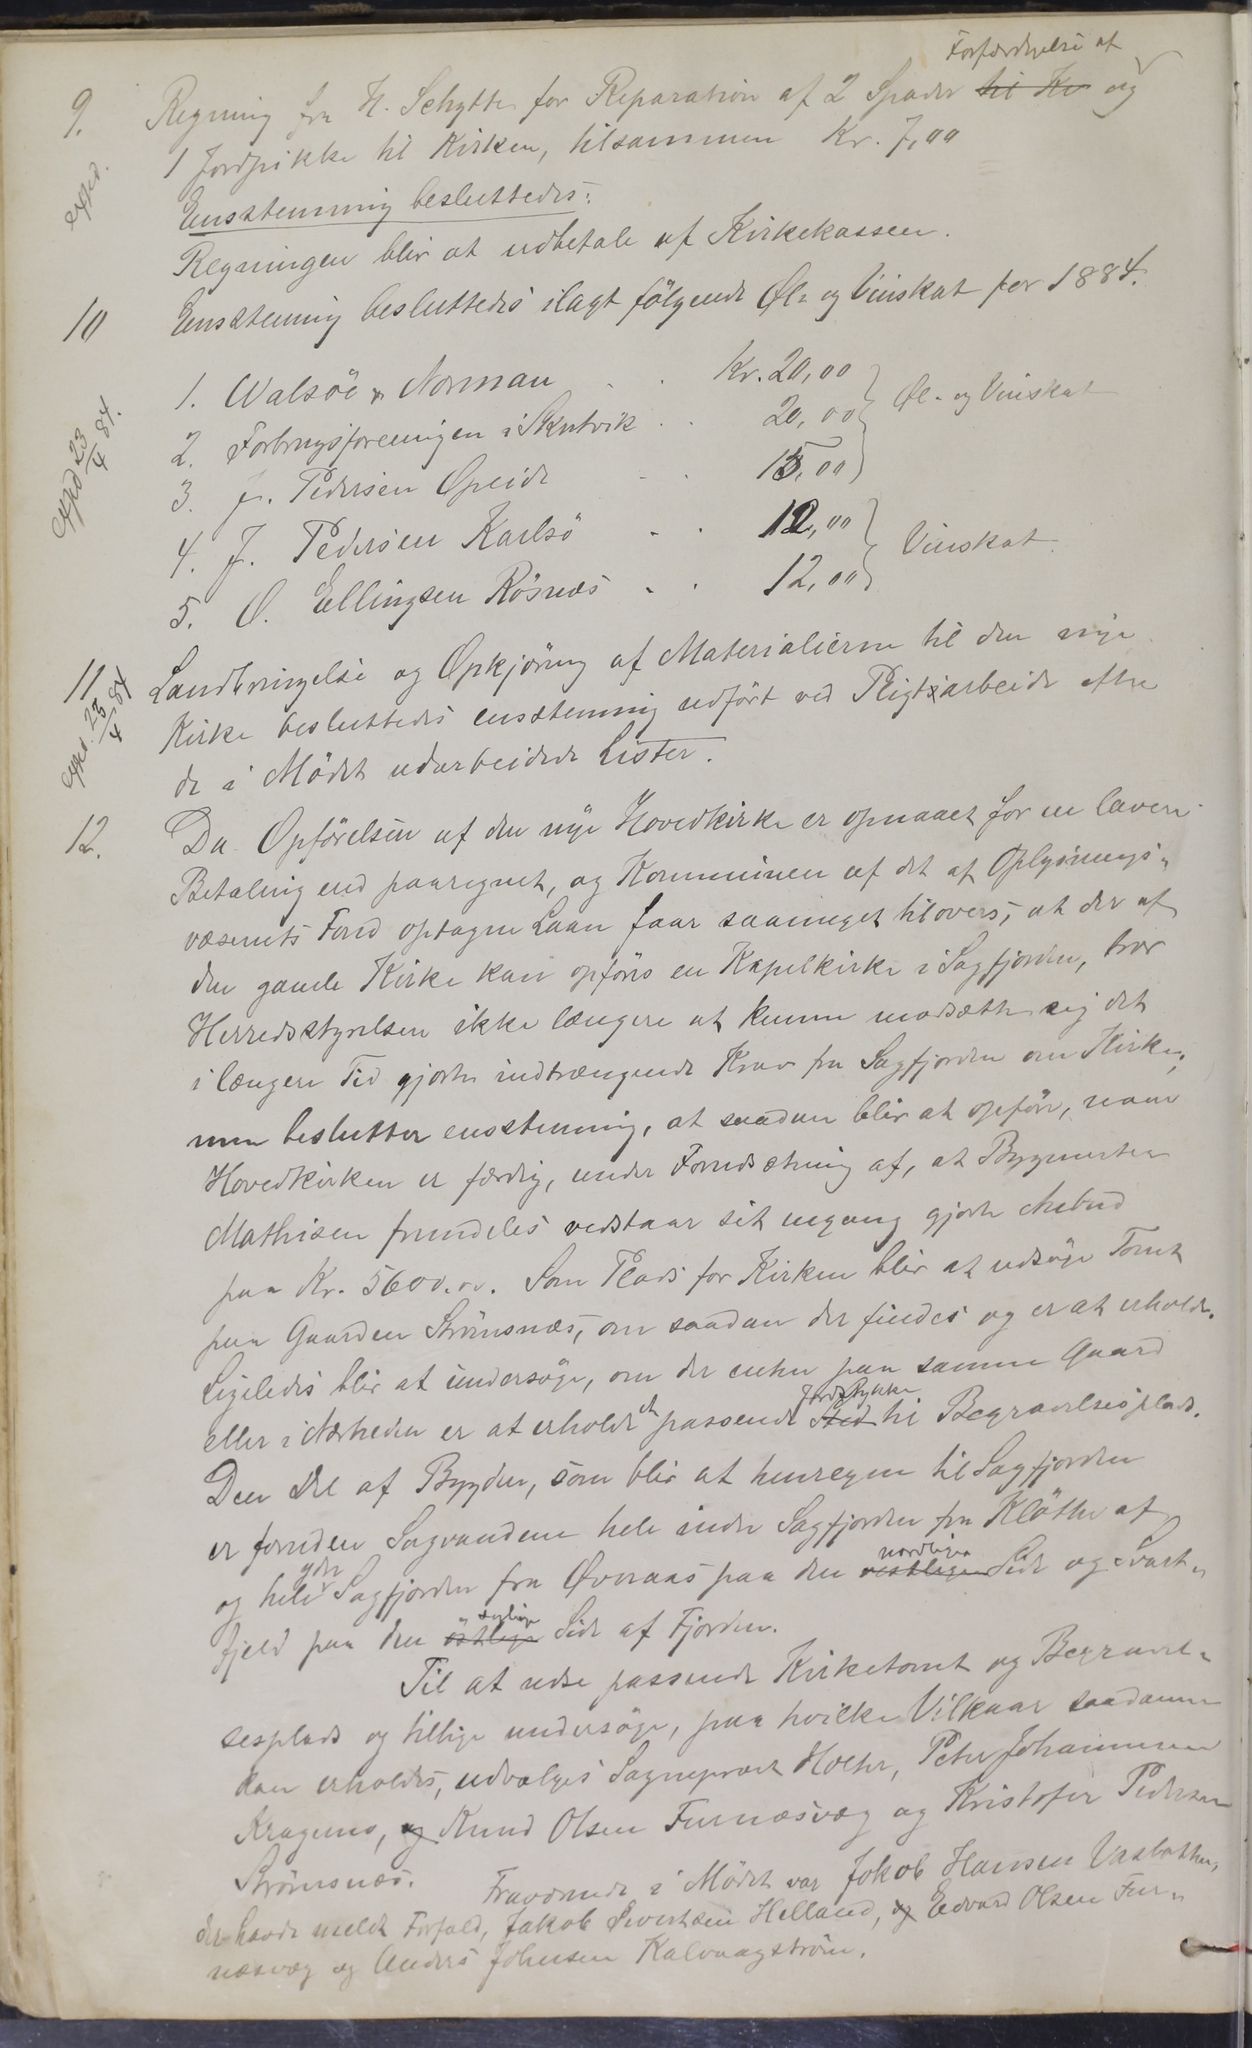 Forfærdigelse af
9. Regning fra H. Schytte for Reparation af 2 Spader til Kir og
1 Jordhakke til Kirken, tilsammen Kr. 7,00
exped.
Enstemmig besluttedes:
Regningen blir at udbetale af Kirkekassen.
10 Enstemmig besluttedes ilagt følgende Øl- og Vinskat for 1884.
1. Walsöe & Norman . . Kr. 20,00
2. Forbrugsforeningen i Skutvik . . 20,00 Øl- og Vinskat
3. J. Pedersen Opeide . . 15,00
exped 23/4 84.
4. J. Pedersen Karlsö . . 12,00
5. O. Ellingsen Rösnæs . . 12,00 Vinskat.
11 Landbringelse og Opkjöring af Materialierne til den nye
Kirke besluttedes enstemmig udfört ved Pligtsarbeide efter
exped. 23/4 84
de i Mödet udarbeidede Lister.
12. Da Opförelsen af den nye Hovedkirke er opnaaet for en lavere
Betaling end paaregnet, og Kommunen af det af Oplysnings-
væsenets Fond optagne Laan faar saameget tilovers, at der af
den gamle Kirke kan opföres en Kapelkirke i Sagfjorden, tror
Herredsstyrelsen ikke længere at kunne modsætte sig det
i længere Tid gjorte indtrængende Krav fra Sagfjorden om Kirke,
men beslutter enstemmig, at saadan blir at opföre, naar
Hovedkirken er færdig, under Forudsætning af, at Bygmester
Mathisen fremdeles vedstaar sit engang gjorte Anbud
paa Kr. 5600.00. Som Plads for Kirken blir at udsöge Tomt
paa Gaarden Strömsnæs, om saadan der findes og er at erholde.
Ligeledes blir at undersöge, om der enten paa samme Gaard
eller i Nærheden er at erholde et passende Sted Jordstykke til Begravelsesplads.
Den Del af Bygden, som blir at henregne til Sagfjorden
er foruden Sagvandene hele indre Sagfjorden fra Klötte af
og hele ydre Sagfjorden fra Øveraas paa den vestlige nordlige Side og Svart-
fjeld paa den östlige sydlige Side af Fjorden.
Til at udse passende Kirketomt og Begravel-
sesplads og tillige undersöge, paa hvilke Vilkaar saadanne
kan erholdes, udvælges Sognepræst Holter, Peter Johannesen
Kragenes, og Knud Olsen Furnæsvæg og Kristofer Pedersen
Strömsnæs.
Fraværende i Mödet var Jakob Hansen Vasbotten,
der havde meldt Forfald, Jakob Sivertsen Helland, og Edvard Olsen Fur-
næsvæg og Anders Johnsen Kalvaagström.